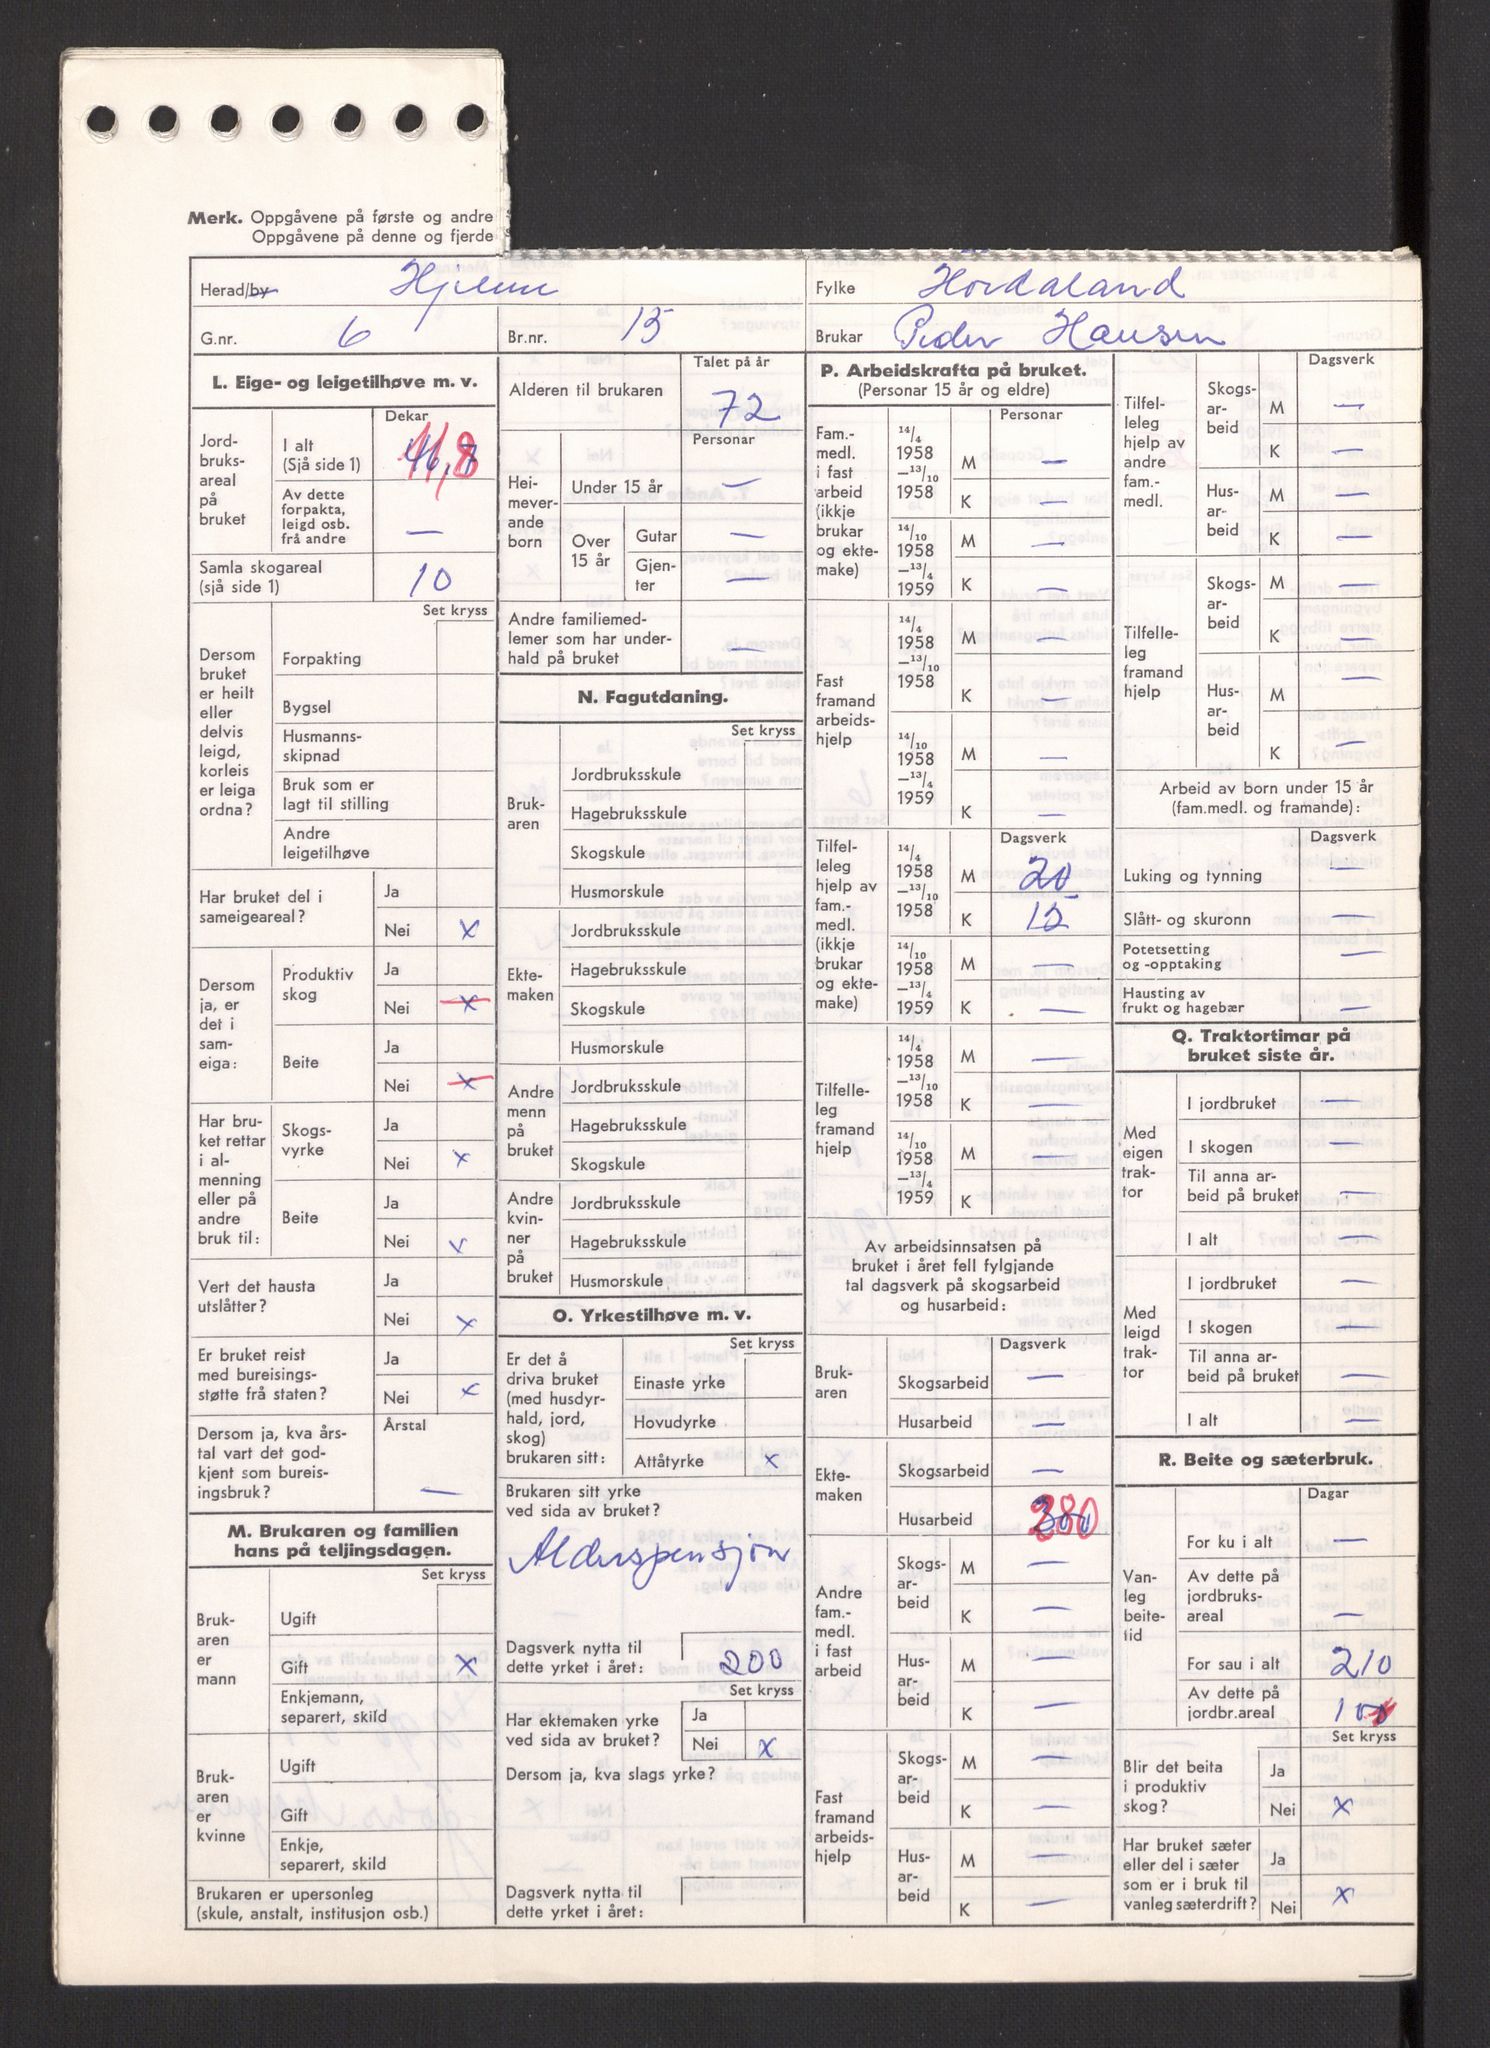 Merk. Oppgåvene på første og andre
Oppgåvene på denne og fjerde
Herad/by Hjelme
Fylke Hordaland
G.nr. 6 Br.nr. 15
Brukar Peder Hansen
L. Eige- og leigetilhøve m. v.
Dekar
Jord-
bruks-
areal
på
bruket
I alt
(Sjå side 1) 11,8
Av dette
forpakta,
leigd osb.
frå andre —
Samla skogareal
(sjå side 1) 10
Set kryss
Dersom
bruket
er heilt
eller
delvis
leigd,
korleis
er leiga
ordna?
Forpakting
Bygsel
Husmanns-
skipnad
Bruk som er
lagt til stilling
Andre
leigetilhøve
Har bruket del i
sameigeareal?
Ja
Nei x
Dersom
ja, er
det i
sam-
eiga:
Produktiv
skog
Ja
Nei x
Beite
Ja
Nei x
Har bru-
ket rettar
i al-
menning
eller på
andre
bruk til:
Skogs-
vyrke
Ja
Nei x
Beite
Ja
Nei x
Vert det hausta
utslåtter?
Ja
Nei x
Er bruket reist
med bureisings-
støtte frå staten?
Ja
Nei x
Dersom ja, kva års-
tal vart det god-
kjent som bureis-
ingsbruk?
Årstal
—
M. Brukaren og familien
hans på teljingsdagen.
Set kryss
Bruk-
aren
er
mann
Ugift
Gift x
Enkjemann,
separert, skild
Bruk-
aren
er
kvinne
Ugift
Gift
Enkje,
separert, skild
Brukaren er upersonleg
(skule, anstalt, institusjon osb.)
Talet på år
Alderen til brukaren 72
Personar
Hei-
mever-
ande
born
Under 15 år —
Over
15 år
Gutar —
Gjen-
ter —
Andre familiemed-
lemer som har under-
hald på bruket —
N. Fagutdaning.
Set kryss
Bruk-
aren
Jordbruksskule
Hagebruksskule
Skogskule
Husmorskule
Ekte-
maken
Jordbruksskule
Hagebruksskule
Skogskule
Husmorskule
Andre
menn
på
bruket
Jordbruksskule
Hagebruksskule
Skogskule
Andre
kvin-
ner
på
bruket
Jordbruksskule
Hagebruksskule
Husmorskule
O. Yrkestilhøve m. v.
Set kryss
Er det å
driva bruket
(med husdyr-
hald, jord,
skog)
brukaren sitt:
Einaste yrke
Hovudyrke
Attåtyrke x
Brukaren sitt yrke
ved sida av bruket?
Alderspensjon
Dagsverk nytta til
dette yrket i året: 200
Set kryss
Har ektemaken yrke
ved sida av bruket?
Ja
Nei x
Dersom ja, kva slags yrke?
Dagsverk nytta til
dette yrket i året:
P. Arbeidskrafta på bruket.
(Personar 15 år og eldre)
Personar
Fam.-
medl.
i fast
arbeid
(ikkje
brukar
og ekte-
make)
14/4
1958
—13/10
1958
M —
K —
14/10
1958
—13/4
1959
M —
K —
Fast
framand
arbeids-
hjelp
14/4
1958
—13/10
1958
M —
K —
14/10
1958
—13/4
1959
M —
K —
Dagsverk
Tilfel-
leleg
hjelp av
fam.-
medl.
(ikkje
brukar
og ekte-
make)
14/4
1958
—13/10
1958
M 20
K 15
14/10
1958
—13/4
1959
M —
K —
Tilfelle-
leg
framand
hjelp
14/4
1958
—13/10
1958
M —
K —
14/10
1958
—13/4
1959
M —
K —
Av arbeidsinnsatsen på
bruket i året fell fylgjande
tal dagsverk på skogsarbeid
og husarbeid:
Dagsverk
Bruk-
aren
Skogsarbeid —
Husarbeid —
Ekte-
maken
Skogsarbeid —
Husarbeid 280
Andre
fam.-
medl.
i fast
arbeid
Skogs-
ar-
beid
M —
K —
Hus-
ar-
beid
M —
K —
Fast
framand
arbeids-
hjelp
Skogs-
ar-
beid
M —
K —
Hus-
ar-
beid
M —
K —
Dagsverk
Tilfel-
leleg
hjelp av
andre
fam.-
medl.
Skogs-
ar-
beid
M —
K —
Hus-
ar-
beid
M —
K —
Tilfelle-
leg
framand
hjelp
Skogs-
ar-
beid
M —
K —
Hus-
ar-
beid
M —
K —
Arbeid av born under 15 år
(fam.medl. og framande):
Dagsverk
Luking og tynning —
Slått- og skuronn —
Potetsetting
og -opptaking —
Hausting av
frukt og hagebær —
Q. Traktortimar på
bruket siste år.
Med
eigen
trak-
tor
I jordbruket —
I skogen —
Til anna ar-
beid på bruket —
I alt —
Med
leigd
trak-
tor
I jordbruket —
I skogen —
Til anna ar-
beid på bruket —
I alt —
R. Beite og sæterbruk.
Dagar
Van-
leg
beite-
tid
For ku i alt —
Av dette på
jordbruks-
areal —
For sau i alt 210
Av dette på
jordbr.areal
Set kryss
Blir det beita
i produktiv
skog?
Ja
Nei x
Har bruket sæter
eller del i sæter
som er i bruk til
vanleg sæterdrift?
Ja
Nei x